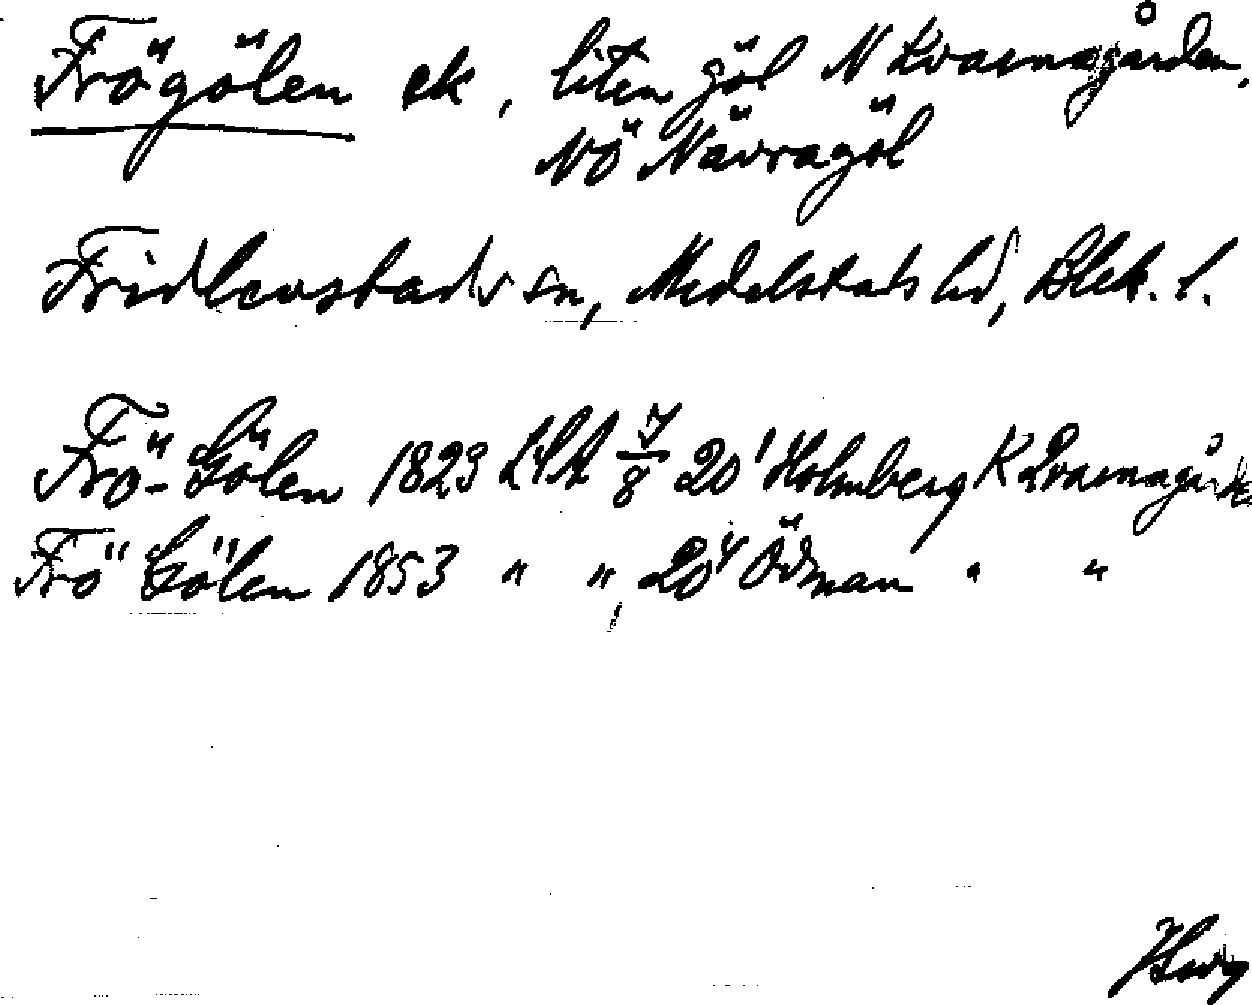 Frögölen ek, liten göl N Kvarnagården,
NÖ Nävragöl
Fridlevstads sn, Medelstads hd, Blek. l.
Frö-Gölen 1823 LSA 7/8 20' Holmberg K Qvarnagårde
Frö Gölen 1853 " " 20 Ödman " "